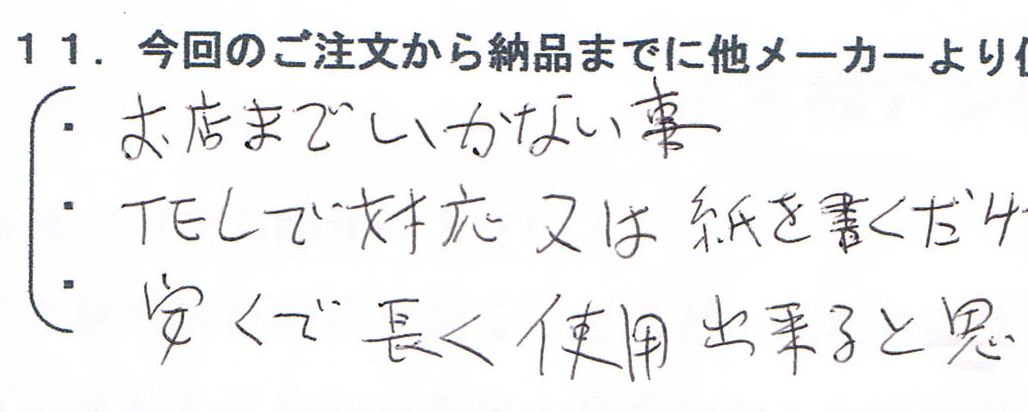 11. 今回のご注文から納品までに他メーカーより
・お店までいかない事
・TELで対応又は紙を書くだけ
・安くて長く使用出来ると思